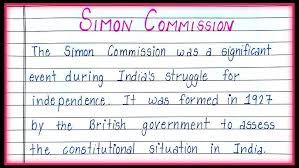 SIMON COMMISSION
The Simon Commission was a significant
event during India's struggle for
independence. It was formed in 1927
by the British government to assess
the constitutional situation in India.